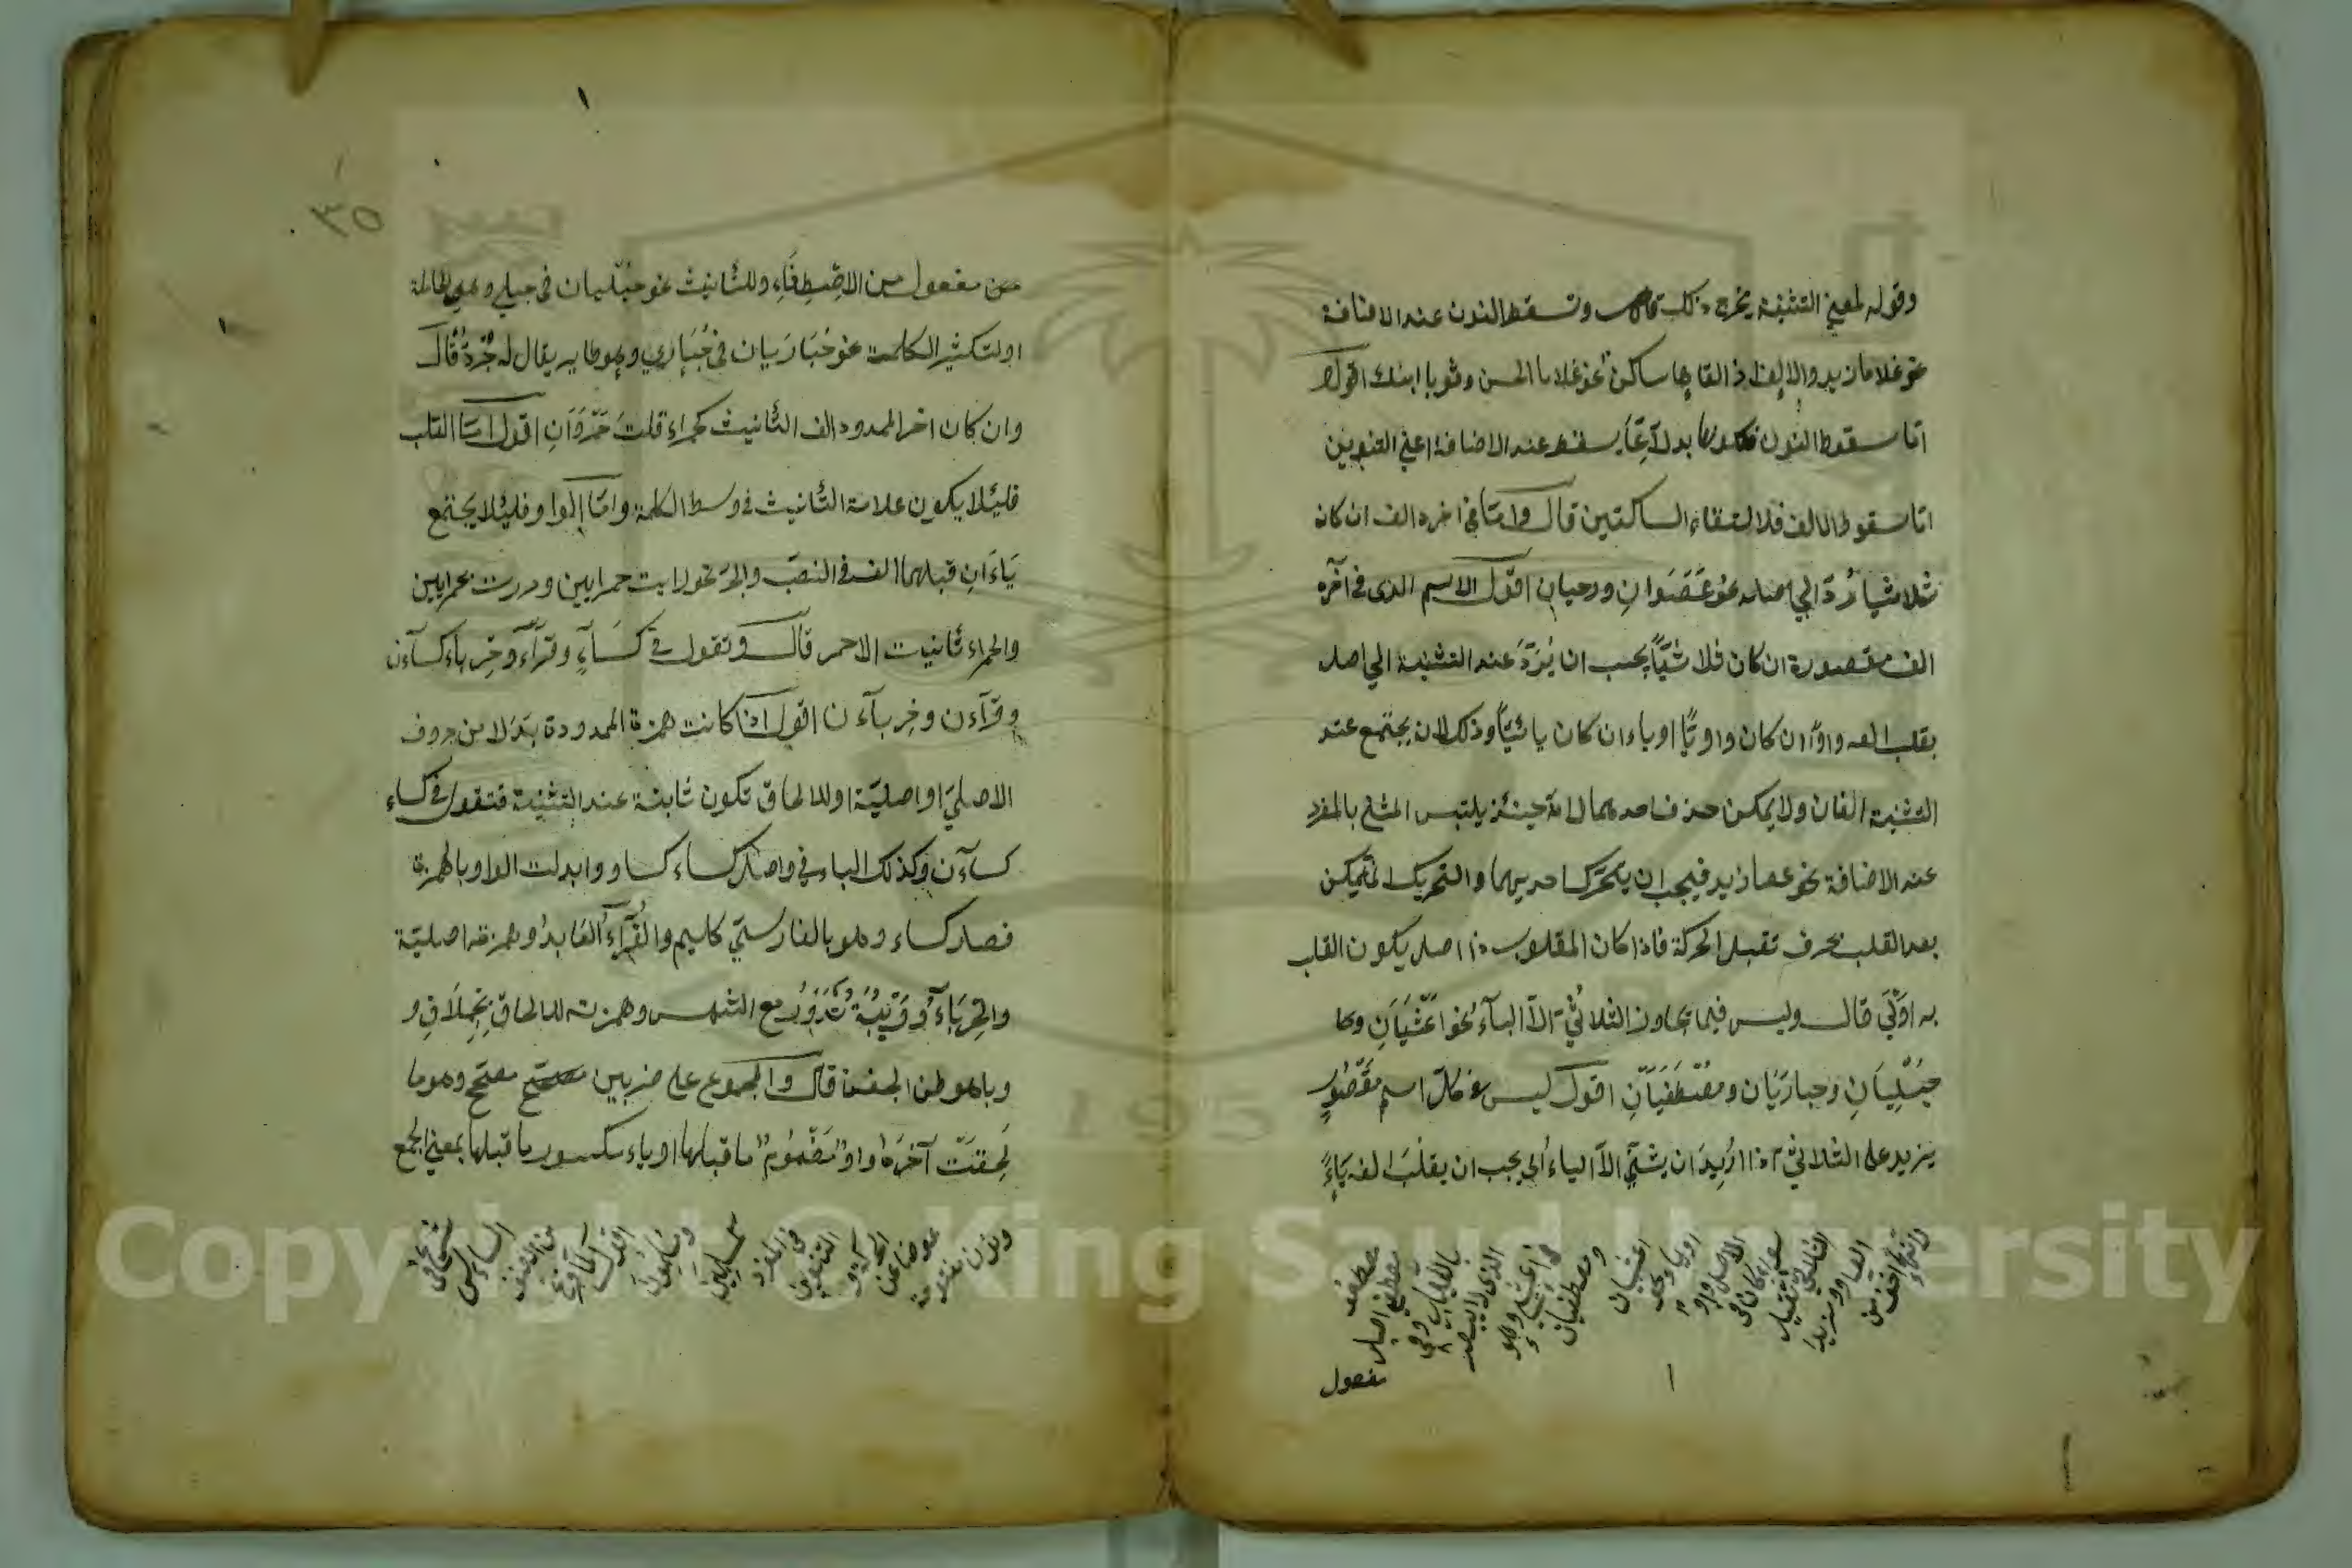 وقوله لمعنى التثنية يخرج ذلك وتسقط النون عند الاضافة
نحو غلاما زيد والالف اذا لقاها ساكن نحو غلاما الحسن وثوبا ابنك اقول
اما سقوط النون فلكونها بدلا عما يسقط عند الاضافة اعنى التنوين
اما سقوط الالف فلالتقاء الساكنين قال واما فى اخره الف ان كان
ثلاثيا رد الى اصله نحو عصوان ورحيان اقول الاسم الذى فى آخره
الف مقصورة ان كان ثلاثيا يجب ان يرد عند التثنية الى اصله
بقلب الفه واوا ان كان واويا او ياء ان كان يائيا وذلك لان يجتمع عند
التثنية الفان ولا يمكن حذف احدهما لانه حينئذ يلتبس المثنى بالمفرد
عند الاضافة نحو عصا زيد فيجب ان يتحرك احديهما والتحريك لا يمكن
بعد القلب بحرف تقبل الحركة فاذا كان المقلوب ذا اصل يكون القلب
به اولى قال وليس فيما يجاوز الثلاثى الا الياء نحو اعشيان وكا
حبليان وحباريان ومصطفيان اقول ليس فى كل اسم مقصور
يزيد على الثلاثى اذا اريد ان يثنى الا الياء اى يجب ان يقلب الفه ياء
لانتهاء
اخف من
الفا او مزيدا
الثلاثى
سواء كان فى
الاصل واو
او ياء نحو
اعشيان
ومصطفيان
فى اعشى وهو
الذى لا يبصر
بالليل وهى
مصطفى اصله
مصطفو
مفعول
٣٥
من مفعول من الاصطفاء وللتأنيث نحو حبليان فى حبلى وهى الحاملة
او لتكثير الكلمة نحو حباريان فى حبارى وهو طاير يقال له جرد قال
وان كان اخر الممدود الف التأنيث كحمراء قلت حمروان اقول اما القلب
فلئلا يكون علامة التأنيث فى وسط الكلمة واما الواو فلئلا يجتمع
ياءان قبلهما الف فى النصب والجر نحو رايت حمرايين ومررت بحمرايين
والحمراء تأنيث الاحمر قال وتقول فى كساء وقراء وحرباء كساءن
وقراءن وحرباءن اقول اذا كانت همزة الممدودة بدلا من حروف
الاصلى او اصلية او للالحاق تكون ثابتة عند التثنية فتقول فى كساء
كساءن وكذلك الباقى واصل كساء كساو وابدلت الواو بالهمزة
فصار كساء وهو بالفارستى كليم والقراء العابد وهمزته اصلية
والحرباء دويبة تدور مع الشمس وهمزته للالحاق بحملاق و
وباهو طن الجفن قال والمجموع على ضربين مصحح وهو ما
لحقت آخره واو مضموم ما قبلها او ياء مكسور ما قبلها بمعنى الجمع
ونون مفتوحة
عوضا عن
الحركة و
التنوين
فى المفرد
نحو مسلمين
ومسلمون
اقول
لما فرغ
من المثنى